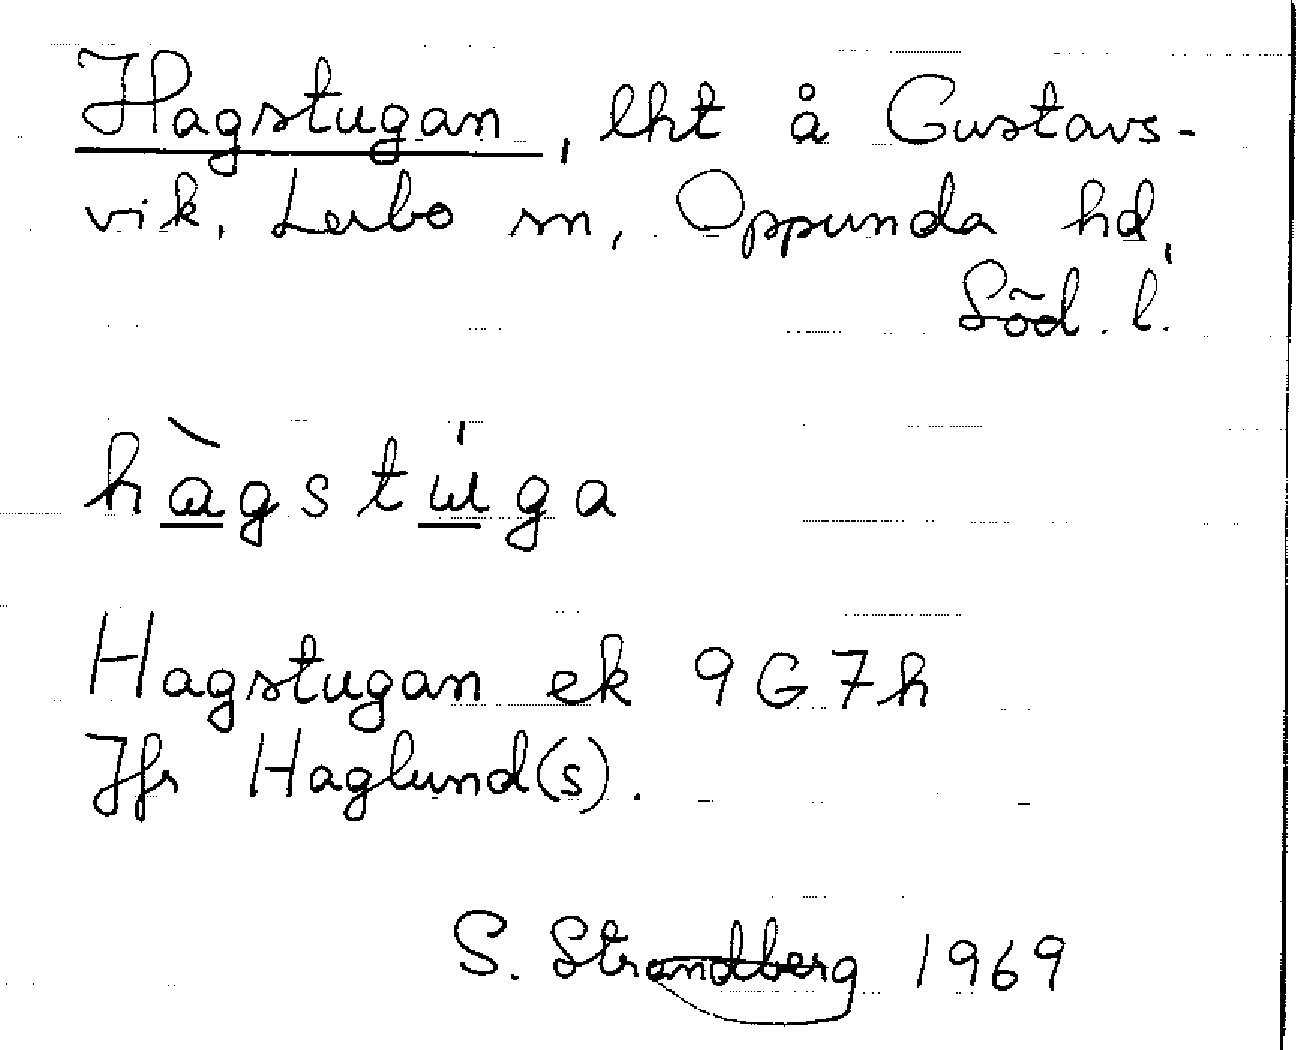 Hagstugan, lht å Gustavs-
vik, Lerbo sn, Oppunda hd,
Söd. l.
hàgstúga
Hagstugan ek 9G7h
Jfr Haglund(s).
S. Strandberg 1969